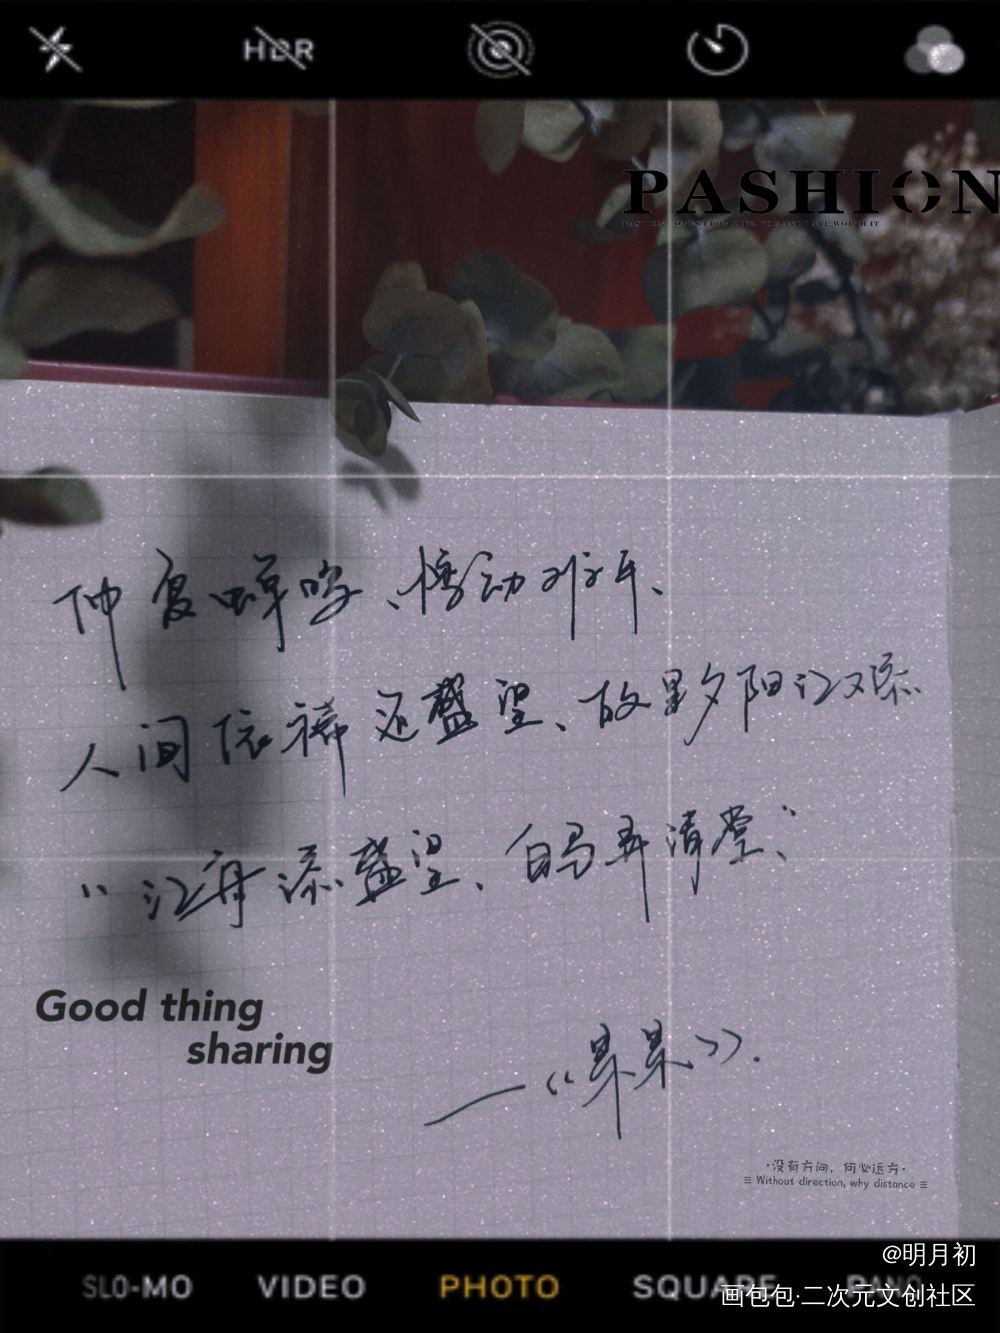 HDR
PASHION
仲夏蝉鸣、悸动
人间依稀还盛望、故里夕阳江又添
“江再添盛望、白马弄清莹”
Good thing
sharing
——《暴暴》.
·没有方向，何必远方·
≡ Without direction, why distance ≡
@明月初
SLO-MO VIDEO PHOTO SQUARE PANO
画包包·二次元文创社区